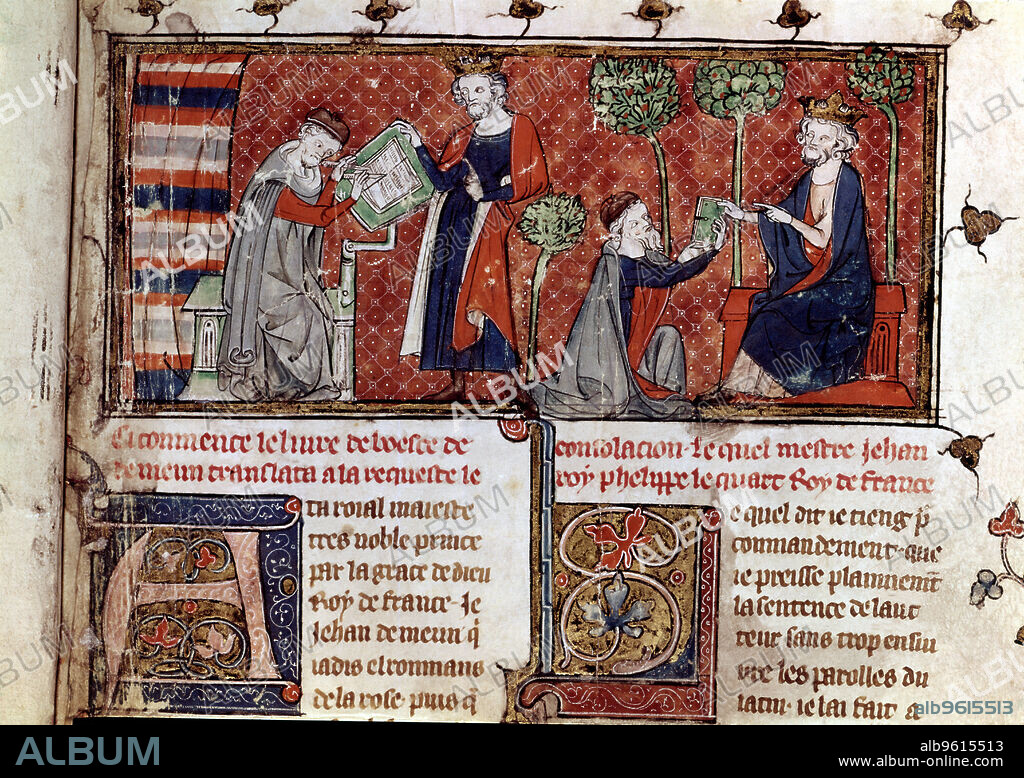 Ci commence le liure de boece de consolacion. Le quel mestre Jehan
de meun translata a la requeste le roy phelippe le quart Roy de france
A ta roial maieste
tres noble prince
par la grace de dieu
Roy de france. Je
Jehan de meun q̃
iadis el rommans
de la rose. puis q̃
L e quel dit ie tieng p̃
commandement. que
ie preisse plainnemt
la sentence de lauc
teur sans trop ensiu
vre les parolles du
latin. ie lai fait a
alb9615513
ALBUM
alb9615513
www.album-online.com